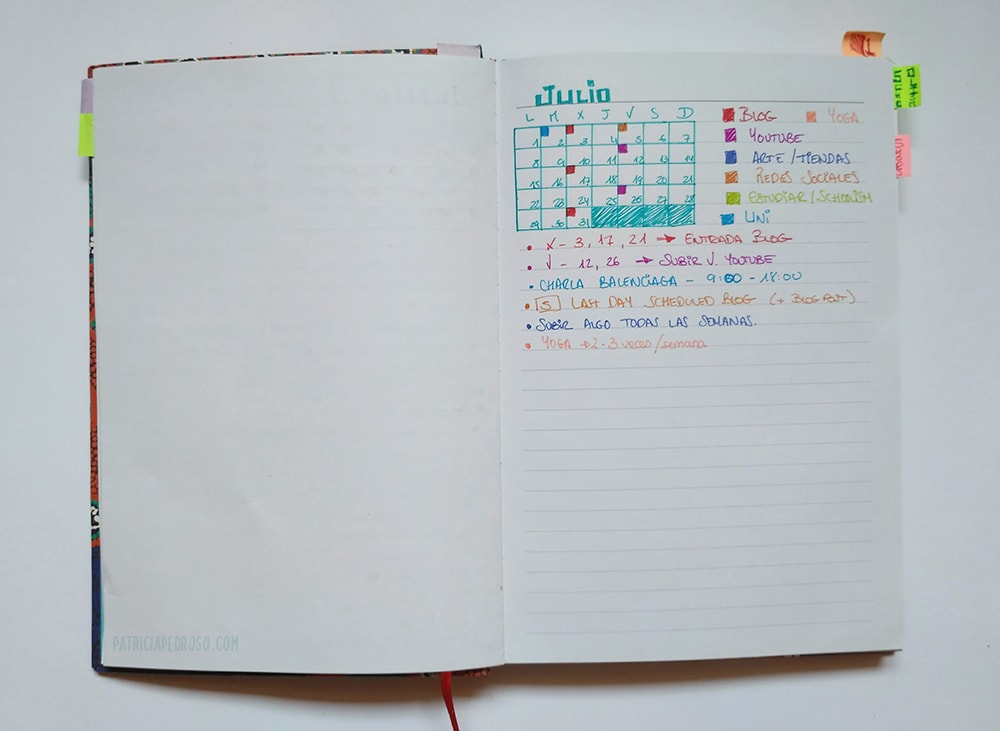 JULIO
L M X J V S D
1 2 3 4 5 6 7
8 9 10 11 12 13 14
15 16 17 18 19 20 21
22 23 24 25 26 27 28
29 30 31
BLOG YOGA
YOUTUBE
ARTE/TIENDAS
REDES SOCIALES
ESTUDIAR/SCHOOLISM
UNI
• X - 3, 17, 21 → ENTRADA BLOG
• V - 12, 26 → SUBIR V. YOUTUBE
• CHARLA BALENCIAGA - 9:00 - 18:00
• 5 LAST DAY SCHEDULED BLOG (+ BLOGPOST)
• SUBIR ALGO TODAS LAS SEMANAS.
• YOGA → 2-3 veces/semana
PATRICIAPEDROSO.COM